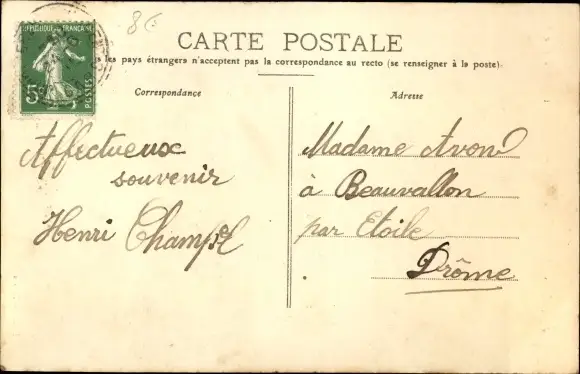 8€
REPUBLIQUE FRANÇAISE
5c
POSTES
CARTE POSTALE
les pays étrangers n'acceptent pas la correspondance au recto (se renseigner à la poste).
Correspondance
Adresse
Affectueux
souvenir
Henri
Madame Avond
à Beauvallon
par Etoile
Drôme